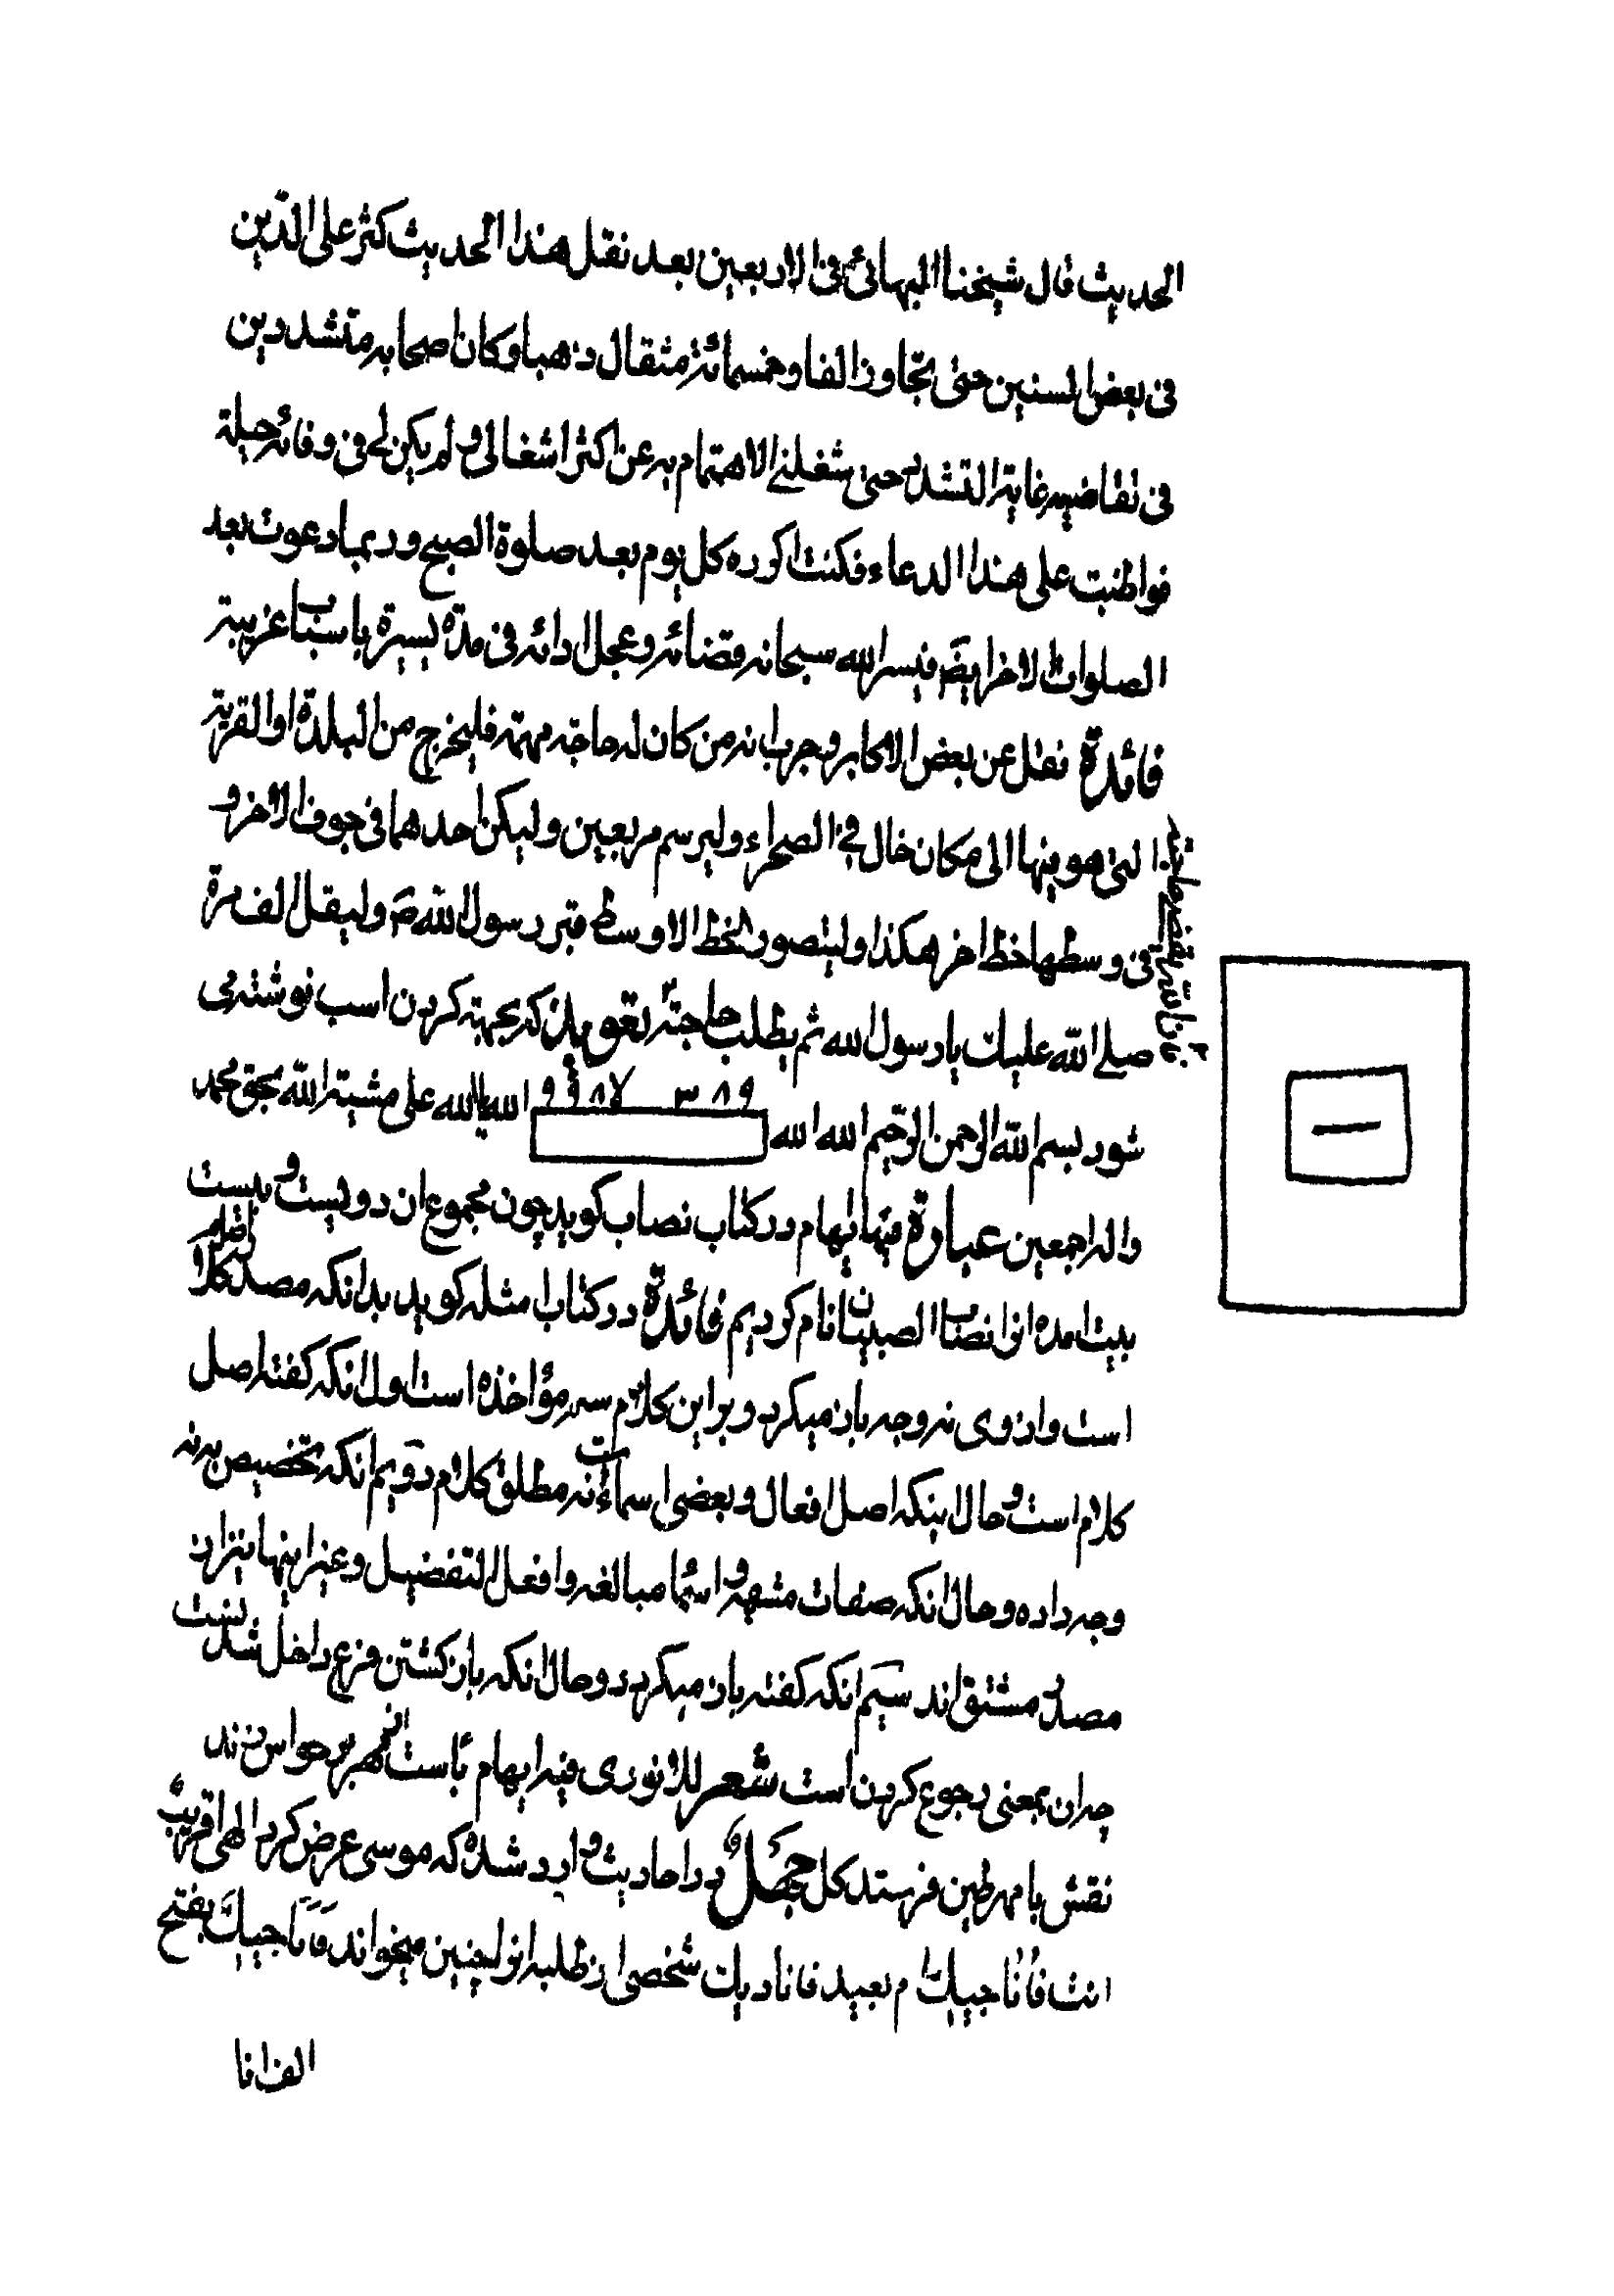 الحديث قال شيخنا البهائى فى الاربعين بعد نقل هذا الحديث كثر على الدّين
فى بعض السنين حتى تجاوز الفا وخمسمائة مثقال ذهبا وكان اصحابه متشددين
فى تقاضيه غاية التشدد حتى شغلنى الاهتمام به عن اكثر اشغالى و لم يكن لى فى وفائه حيلة
فواظبت على هذا الدعاء فكنت اكرره كل يوم بعد صلوة الصبح و ربما دعوت بعد
الصلوات الاخر ايضا فيسر الله سبحانه قضائه و عجل ادائه فى مدة يسيرة باسباب غريبة
فائدة نقل عن بعض الاكابر و جرب انه من كان له حاجة مهمة فليخرج من البلدة او القرية
التى هو فيها الى مكان خال فى الصحراء و ليرسم مربعين و ليكن احدهما فى جوف الاخر و
فى وسطها خط اخر هكذا و ليتصور الخط الاوسط قبر رسول الله ص و ليقل الف مرة
صلى الله عليك يا رسول الله ثم يطلب حاجته تعويذ كه بجهة كردن اسب نوشته مى
فان الله يقضيها
شود بسم الله الرحمن الرحيم الله الله الله يا الله على مشية الله بحق محمد
٣٨٩ ٩٩٨٧
و اله اجمعين عبارة فيها ايهام در كتاب نصاب كويد چون مجموع ان دويست و بيست
بيت امده انرا نصاب الصبيان نام كرديم فائدة در كتاب امثله كويد بدانكه مصدر اصل كلام
است و از وى نه وجه باز ميكردد و بر اين كلام سه مؤاخذه است اول انكه كفته اصل
كلام است و حال اينكه اصل افعال و بعضى اسماء است نه مطلق كلام دويم انكه تخصيص به نه
وجه داده و حال انكه صفات مشبهه و اسماء مبالغه و افعل التفضيل و غير اينها نيز از
مصدر مشتق اند سيم انكه كفته باز ميكردد و حال انكه باز كشتن فرع داخل شدنست
چه ان بمعنى رجوع كردن است شعر للانورى فيه ايهام باست انهم بر حواس زند
نقش با مهر طين فرستد كل در احاديث وارد شده كه موسى عرض كرد الهى اقريب
انت فاناجيك ام بعيد فاناديك شخصى از طلبه انرا چنين ميخواند فانا جيبك بفتح
الف انا